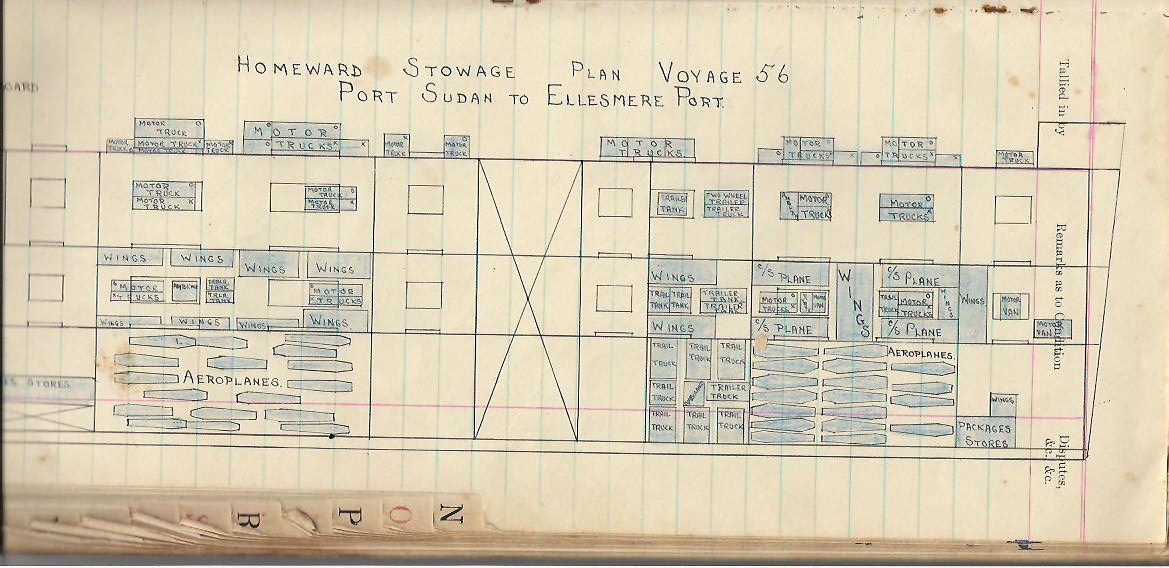 HOMEWARD STOWAGE PLAN VOYAGE 56
PORT SUDAN TO ELLESMERE PORT.
OARD
MOTOR TRUCK
MOTOR TRUCK
MOTOR TRUCK
MOTOR TRUCK
MOTOR TRUCKS
MOTOR TRUCK
MOTOR TRUCK
MOTOR TRUCKS
MOTOR TRUCKS
MOTOR TRUCKS
MOTOR TRUCK
MOTOR TRUCK
MOTOR TRUCK
MOTOR TRUCK
MOTOR TRUCK
TRAILER TANK
TWO WHEEL TRAILER
TRAILER TRUCK
MOTOR TRUCKS
MOTOR TRUCKS
WINGS
WINGS
WINGS
WINGS
WINGS
C/S PLANE
WINGS
C/S PLANE
WINGS
WINGS
MOTOR TRUCKS
TRAILER TANK
TRLR TANK
MOTOR TRUCKS
TRAIL TANK
TRAIL TANK
TRAILER TANK
TRAILER
MOTOR TRUCKS
VAN
TRAIL TRUCK
MOTOR TRUCKS
MOTOR VAN
MOTOR VAN
WINGS
WINGS
WINGS
WINGS
WINGS
C/S PLANE
C/S PLANE
AEROPLANES.
TRAIL TRUCK
TRAIL TRUCK
TRAIL TRUCK
AEROPLANES.
STORES
TRAIL TRUCK
TRAILER TRUCK
WINGS
TRAIL TRUCK
TRAIL TRUCK
TRAIL TRUCK
PACKAGES
STORES
Tallied in by
Remarks as to Condition
Disputes,
&c. &c.
R
P
O
N